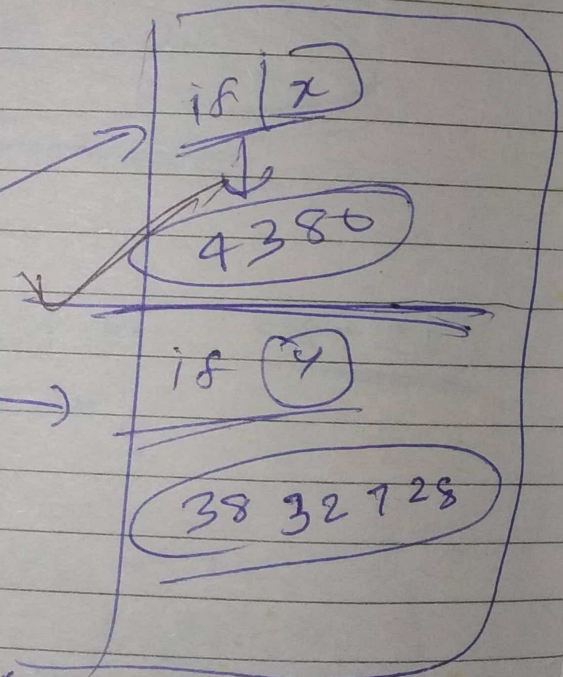 if x
4380
if y
3832728